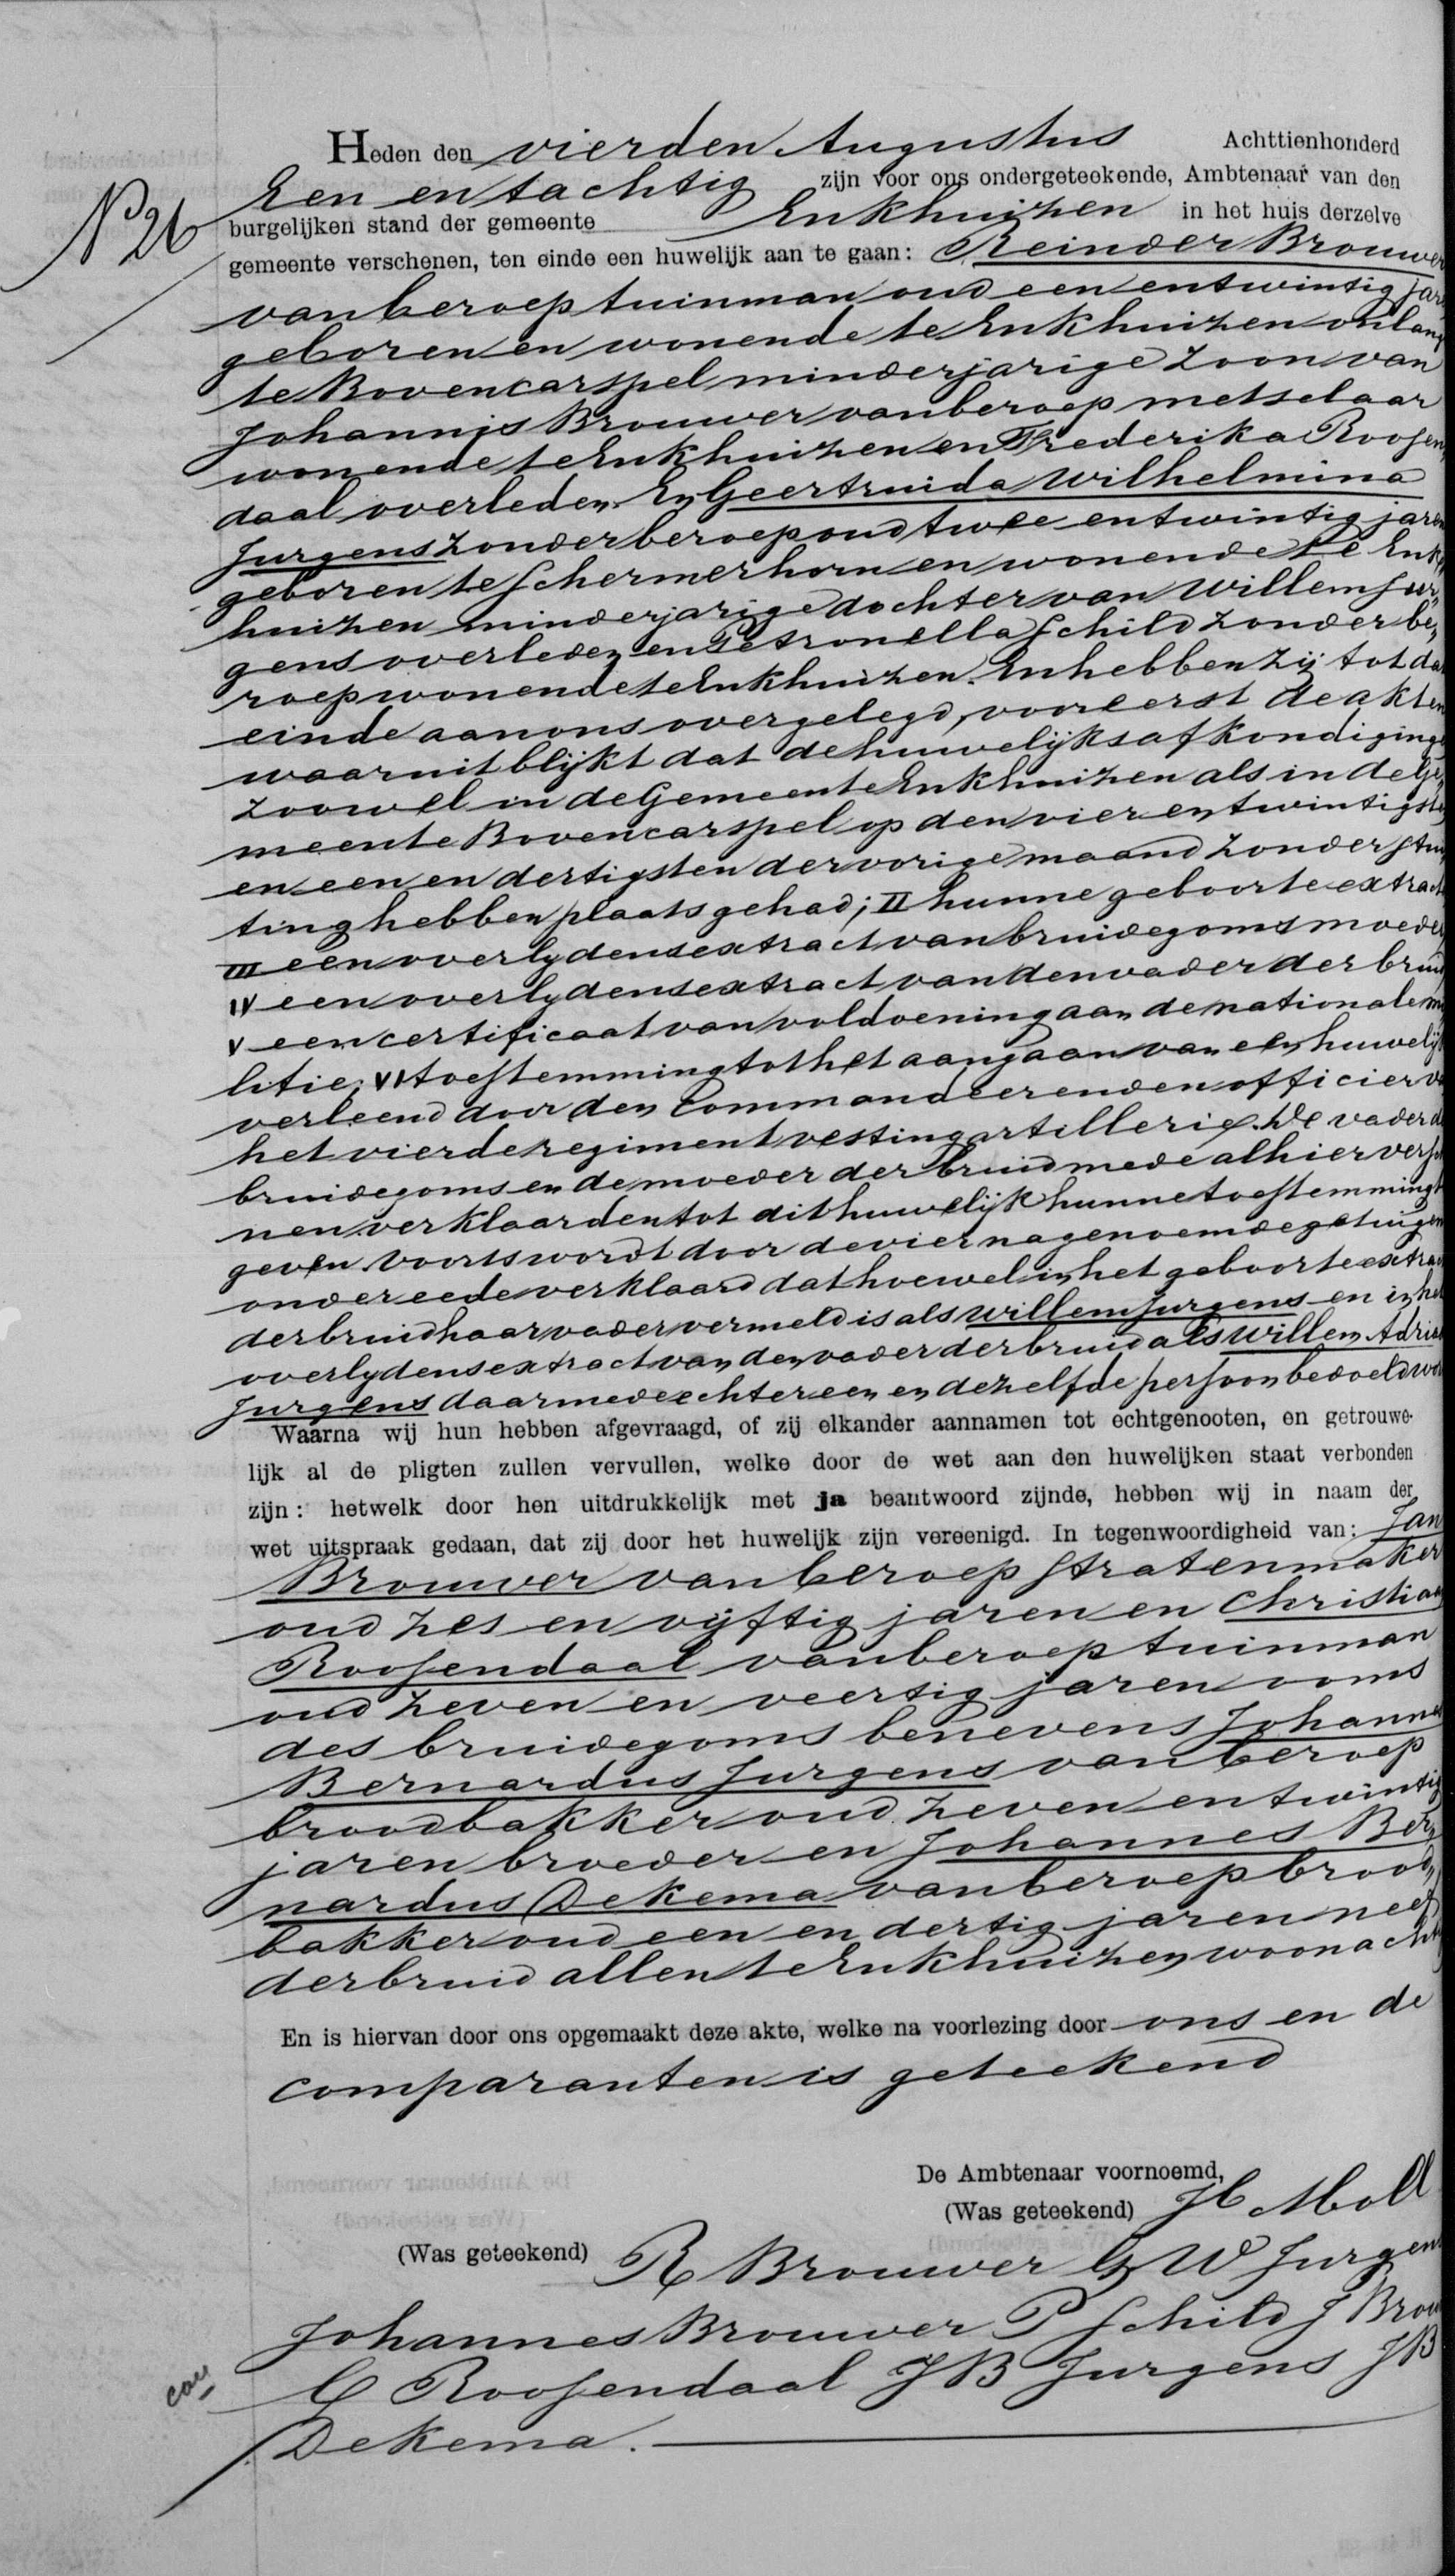 Nº 26
Heden den vierden Augustus Achttienhonderd
Een en tachtig zijn voor ons ondergeteekende, Ambtenaar van den
burgelijken stand der gemeente Enkhuizen in het huis derzelve
gemeente verschenen, ten einde een huwelijk aan te gaan: Reinder Brouwer
van beroep tuinman oud een en twintig jar
geboren en wonende te Enkhuizen onlang
te Bovencarspel minderjarige zoon van
Johannis Brouwer van beroep metselaar
wonende te Enkhuizen en Frederika Roosen
daal overleden En Geertruida Wilhelmina
Jurgens zonder beroep oud twee en twintig jaren
geboren te Schermerhorn en wonende te Enk
huizen minderjarige dochter van Willem Jur
gens overleden en Petronella Schild zonder be
roep wonende te Enkhuizen. En hebben zij tot da
einde aan ons overgelegd, vooreerst de akten
waaruit blijkt dat de huwelijksafkondiginge
zoowel in de Gemeente Enkhuizen als in de Ge
meente Bovencarspel op den vier en twintigste
en een en dertigsten der vorige maand zonder stui
ting hebben plaats gehad; II hunne geboorteextract
III een overlydensextract van bruidegoms moeder
IV een overlydensextract van den vader der bruid
V een certificaat van voldoening aan de nationale mi
litie; VI toestemming tot het aangaan van een huwelijk
verleend door den Commandeerenden officier va
het vierde regiment vesting artillerie. De vader de
bruidegoms en de moeder der bruid mede alhier versch
nen verklaarden tot dit huwelijk hunne toestemming t
geven. Voorts wordt door de vier nagenoemde getuigen
onder eede verklaard dat hoewel in het geboorteextra
der bruid haar vader vermeld is als Willem Jurgens en in het
overlydensextract van den vader der bruid als Willem Adria
Jurgens daarmede echter een en dezelfde persoon bedoeld wor
Waarna wij hun hebben afgevraagd, of zij elkander aannamen tot echtgenooten, en getrouwe-
lijk al de pligten zullen vervullen, welke door de wet aan den huwelijken staat verbonden
zijn: hetwelk door hen uitdrukkelijk met ja beantwoord zijnde, hebben wij in naam der
wet uitspraak gedaan, dat zij door het huwelijk zijn vereenigd. In tegenwoordigheid van: Jan
Brouwer van beroep stratenmaker
oud zes en vijftig jaren en Christiaan
Roosendaal van beroep tuinman
oud zeven en veertig jaren ooms
des bruidegoms benevens Johannes
Bernardus Jurgens van beroep
broodbakker oud zeven en twintig
jaren broeder en Johannes Ber
nardus Dekema van beroep brood
bakker oud een en dertig jaren neef
der bruid allen te Enkhuizen woonacht
En is hiervan door ons opgemaakt deze akte, welke na voorlezing door ons en de
comparanten is geteekend
De Ambtenaar voornoemd,
(Was geteekend) H Moll
(Was geteekend) R Brouwer G W Jurgens
Johannes Brouwer P Schild J Brou
C Roosendaal J B Jurgens J B
Dekema.